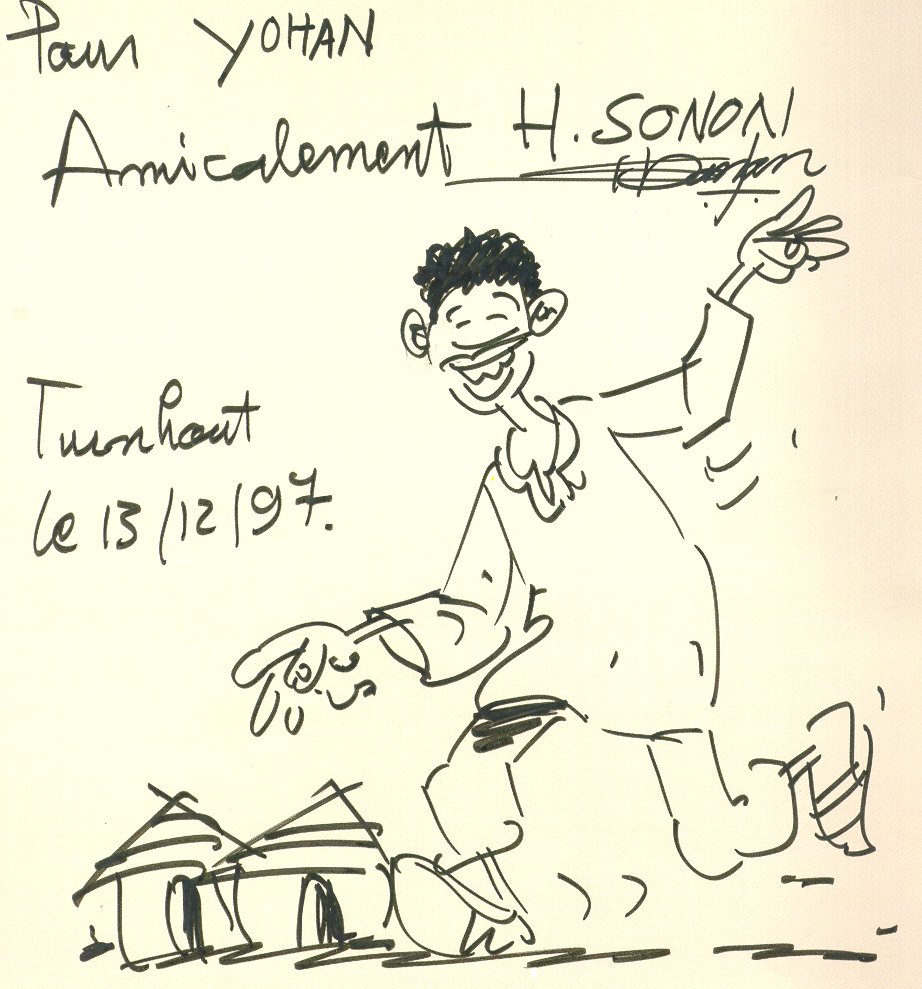 Pour YOHAN
Amicalement H. SONON
Turnhout
le 13/12/97.